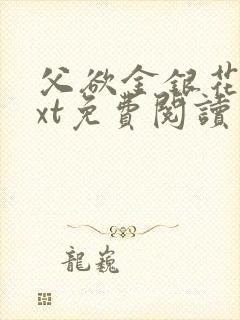 父欲金銀花
xt免費閱讀
龍巍